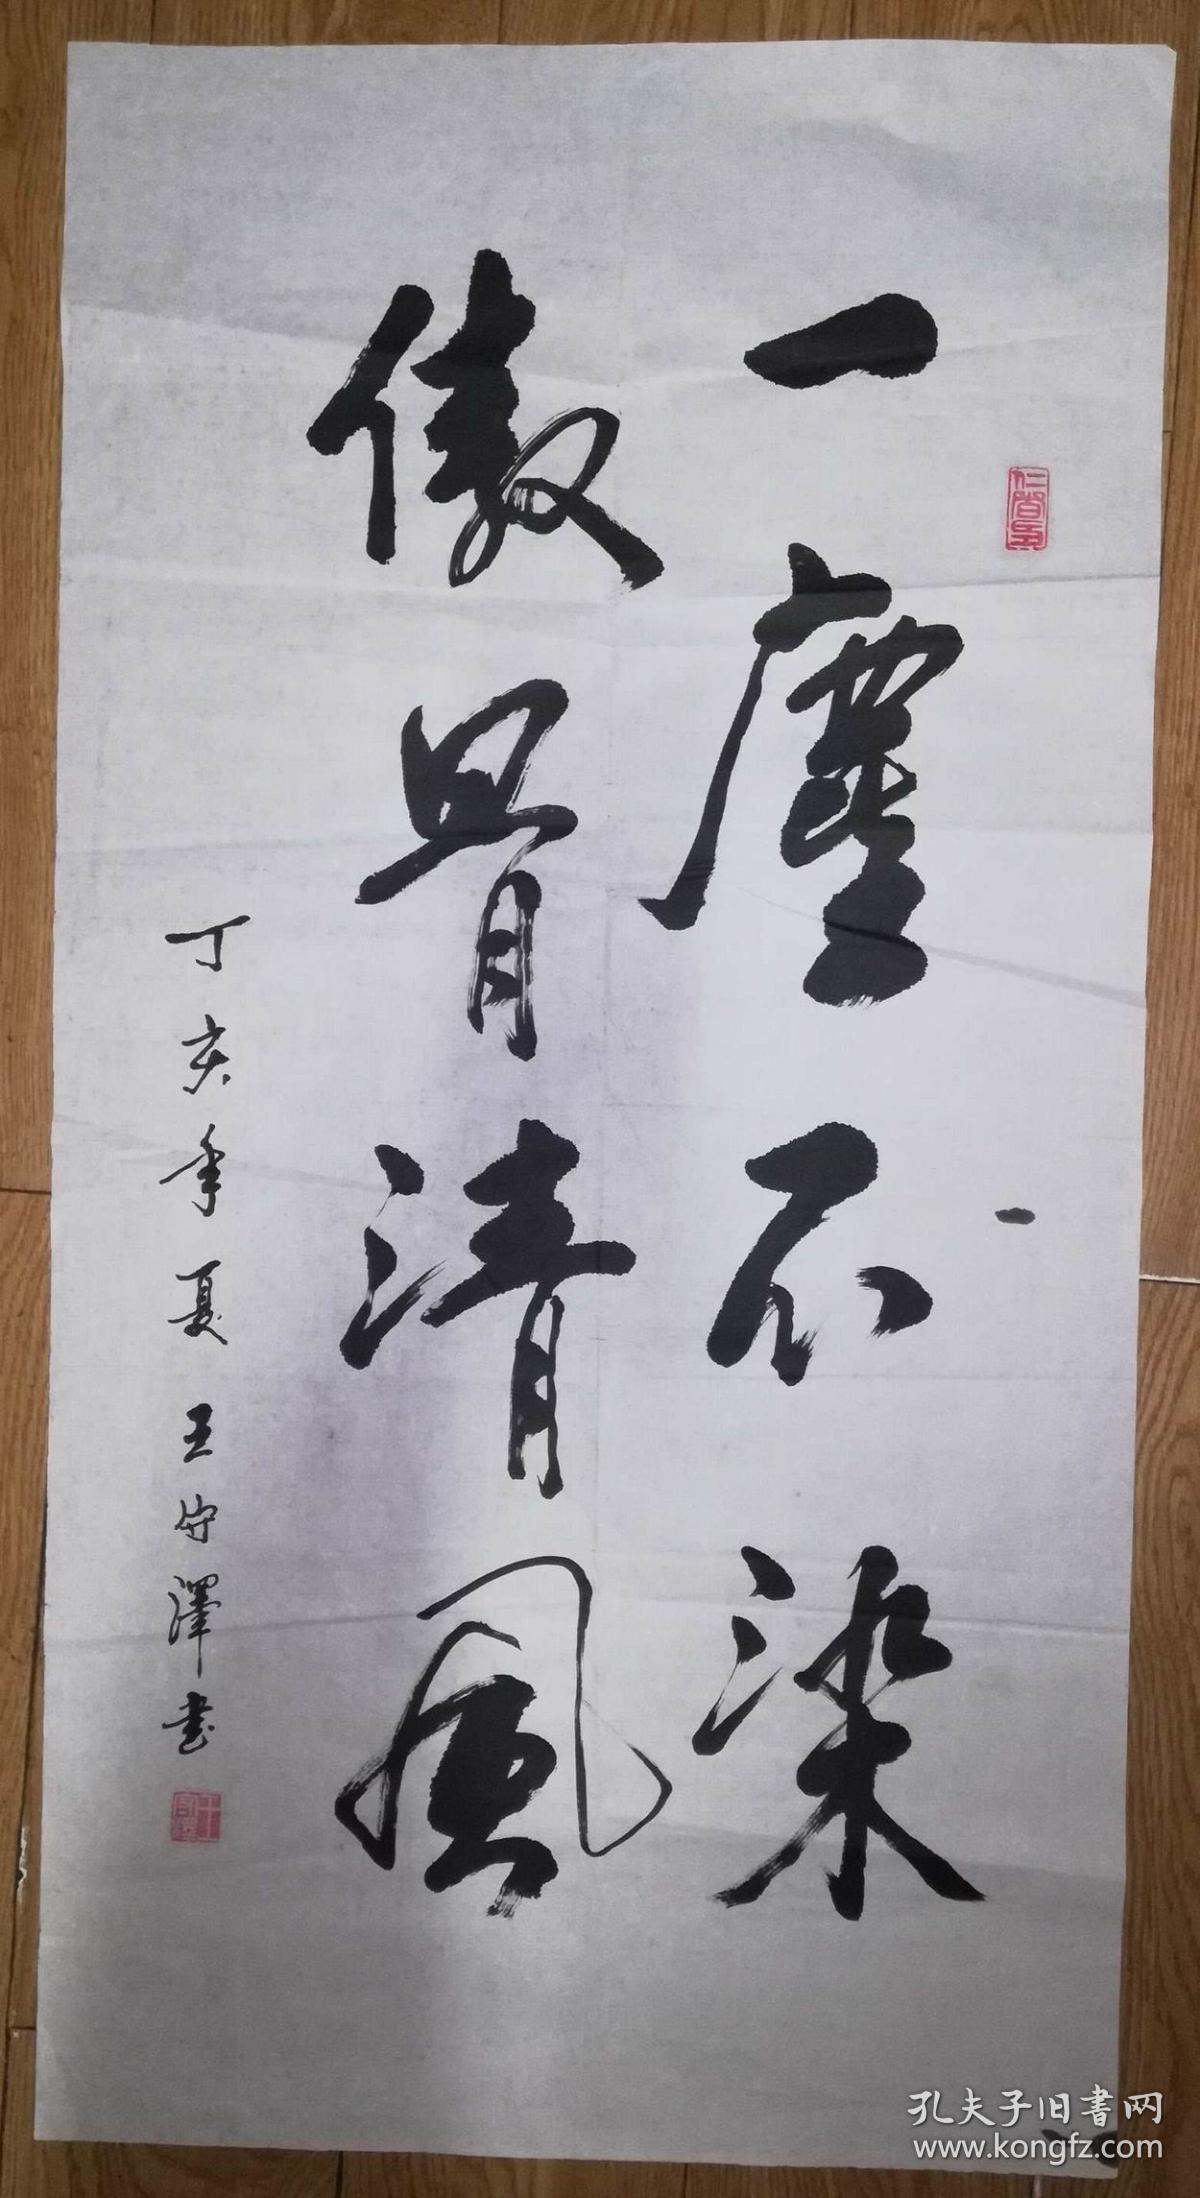 一塵不染
傲骨清風
丁亥年夏王守澤書
孔夫子旧書网
www.kongfz.com